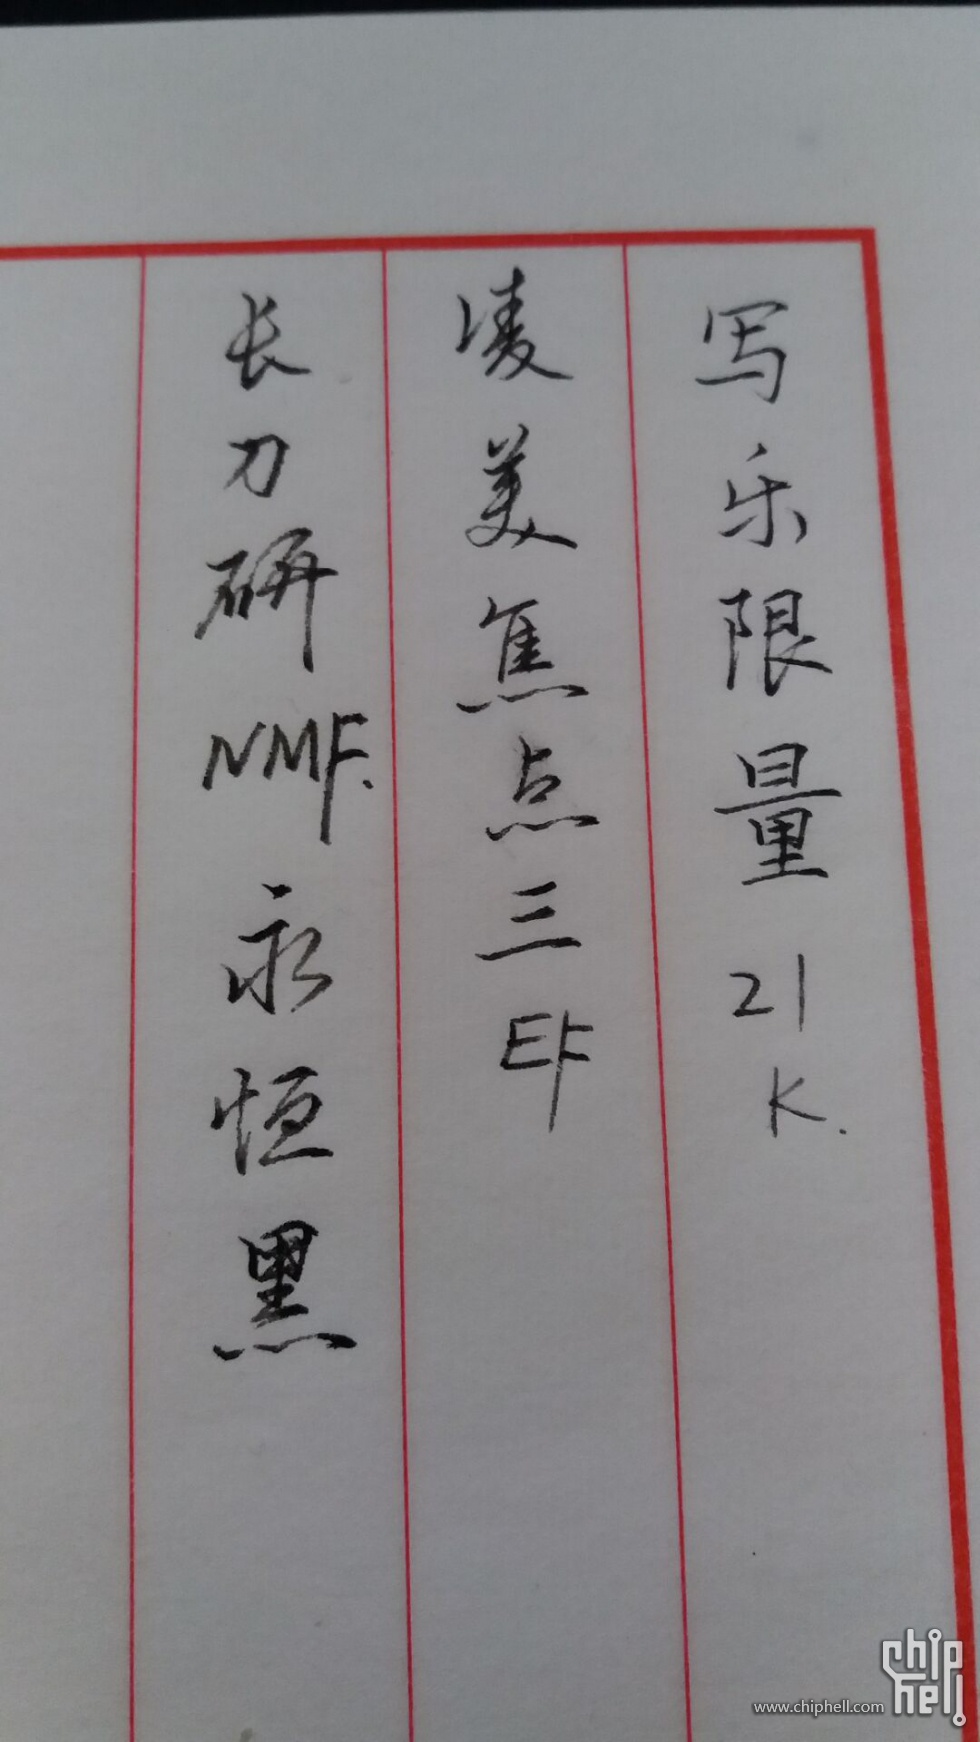 写乐限量21K.
凌美焦点三EF
长刀研NMF.永恒黑
chip hell
www.chiphell.com